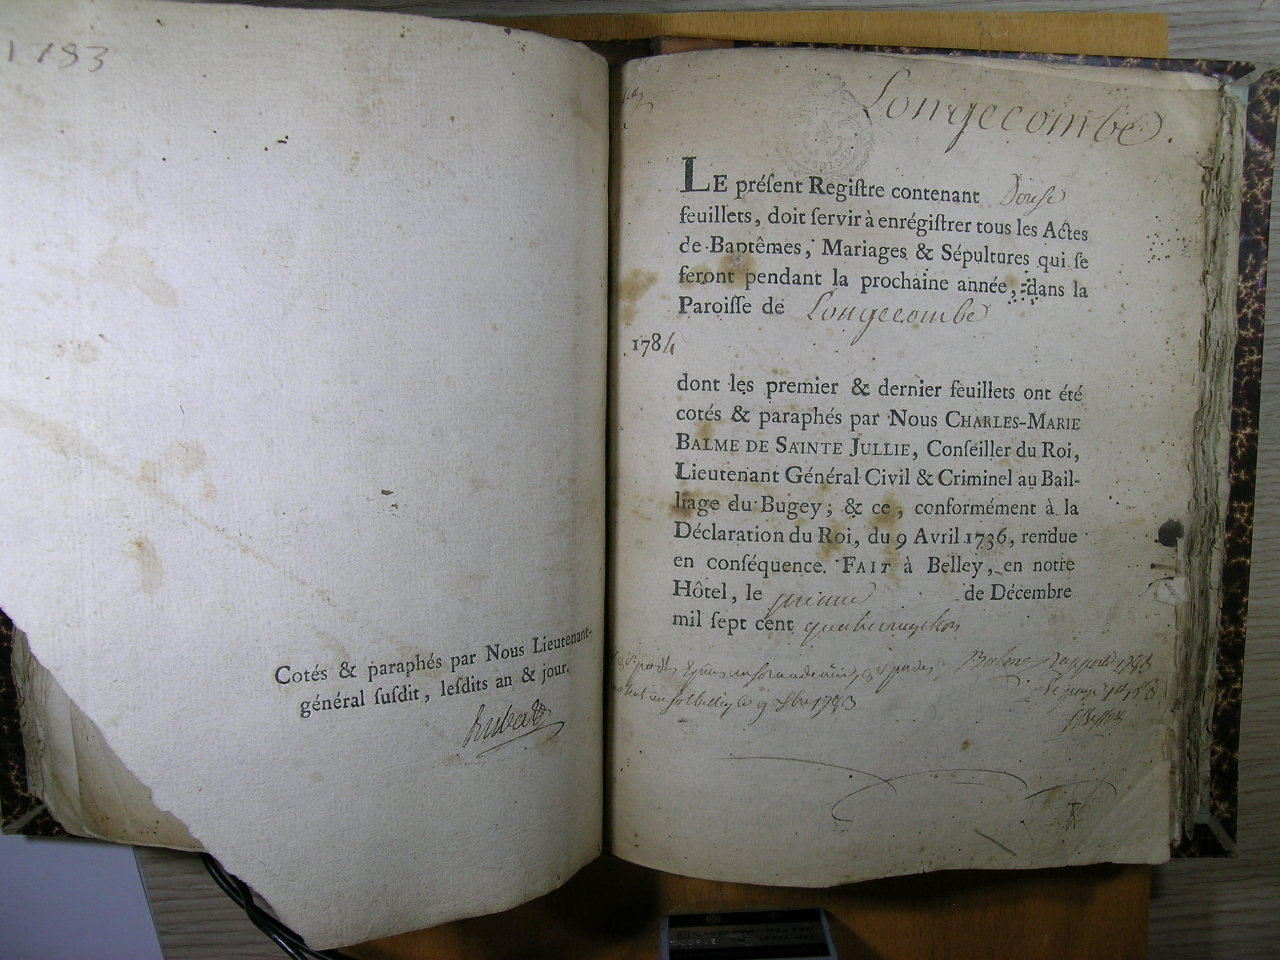 1783
Cotés & paraphés par Nous Lieutenant-
général ſuſdit, leſdits an & jour.
Longecombe.
LE préſent Regiſtre contenant Douſe
feuillets, doit ſervir à enrégiſtrer tous les Actes
de Baptêmes, Mariages & Sépultures qui ſe
feront pendant la prochaine année, dans la
Paroiſſe de Longecombe
1784
dont les premier & dernier feuillets ont été
cotés & paraphés par Nous CHARLES-MARIE
BALME DE SAINTE JULLIE, Conſeiller du Roi,
Lieutenant Général Civil & Criminel au Bail-
liage du Bugey; & ce, conformément à la
Déclaration du Roi, du 9 Avril 1736, rendue
en conſéquence. FAIT à Belley, en notre
Hôtel, le premier de Décembre
mil ſept cent quatrevingt trois
Balme 1783
1783